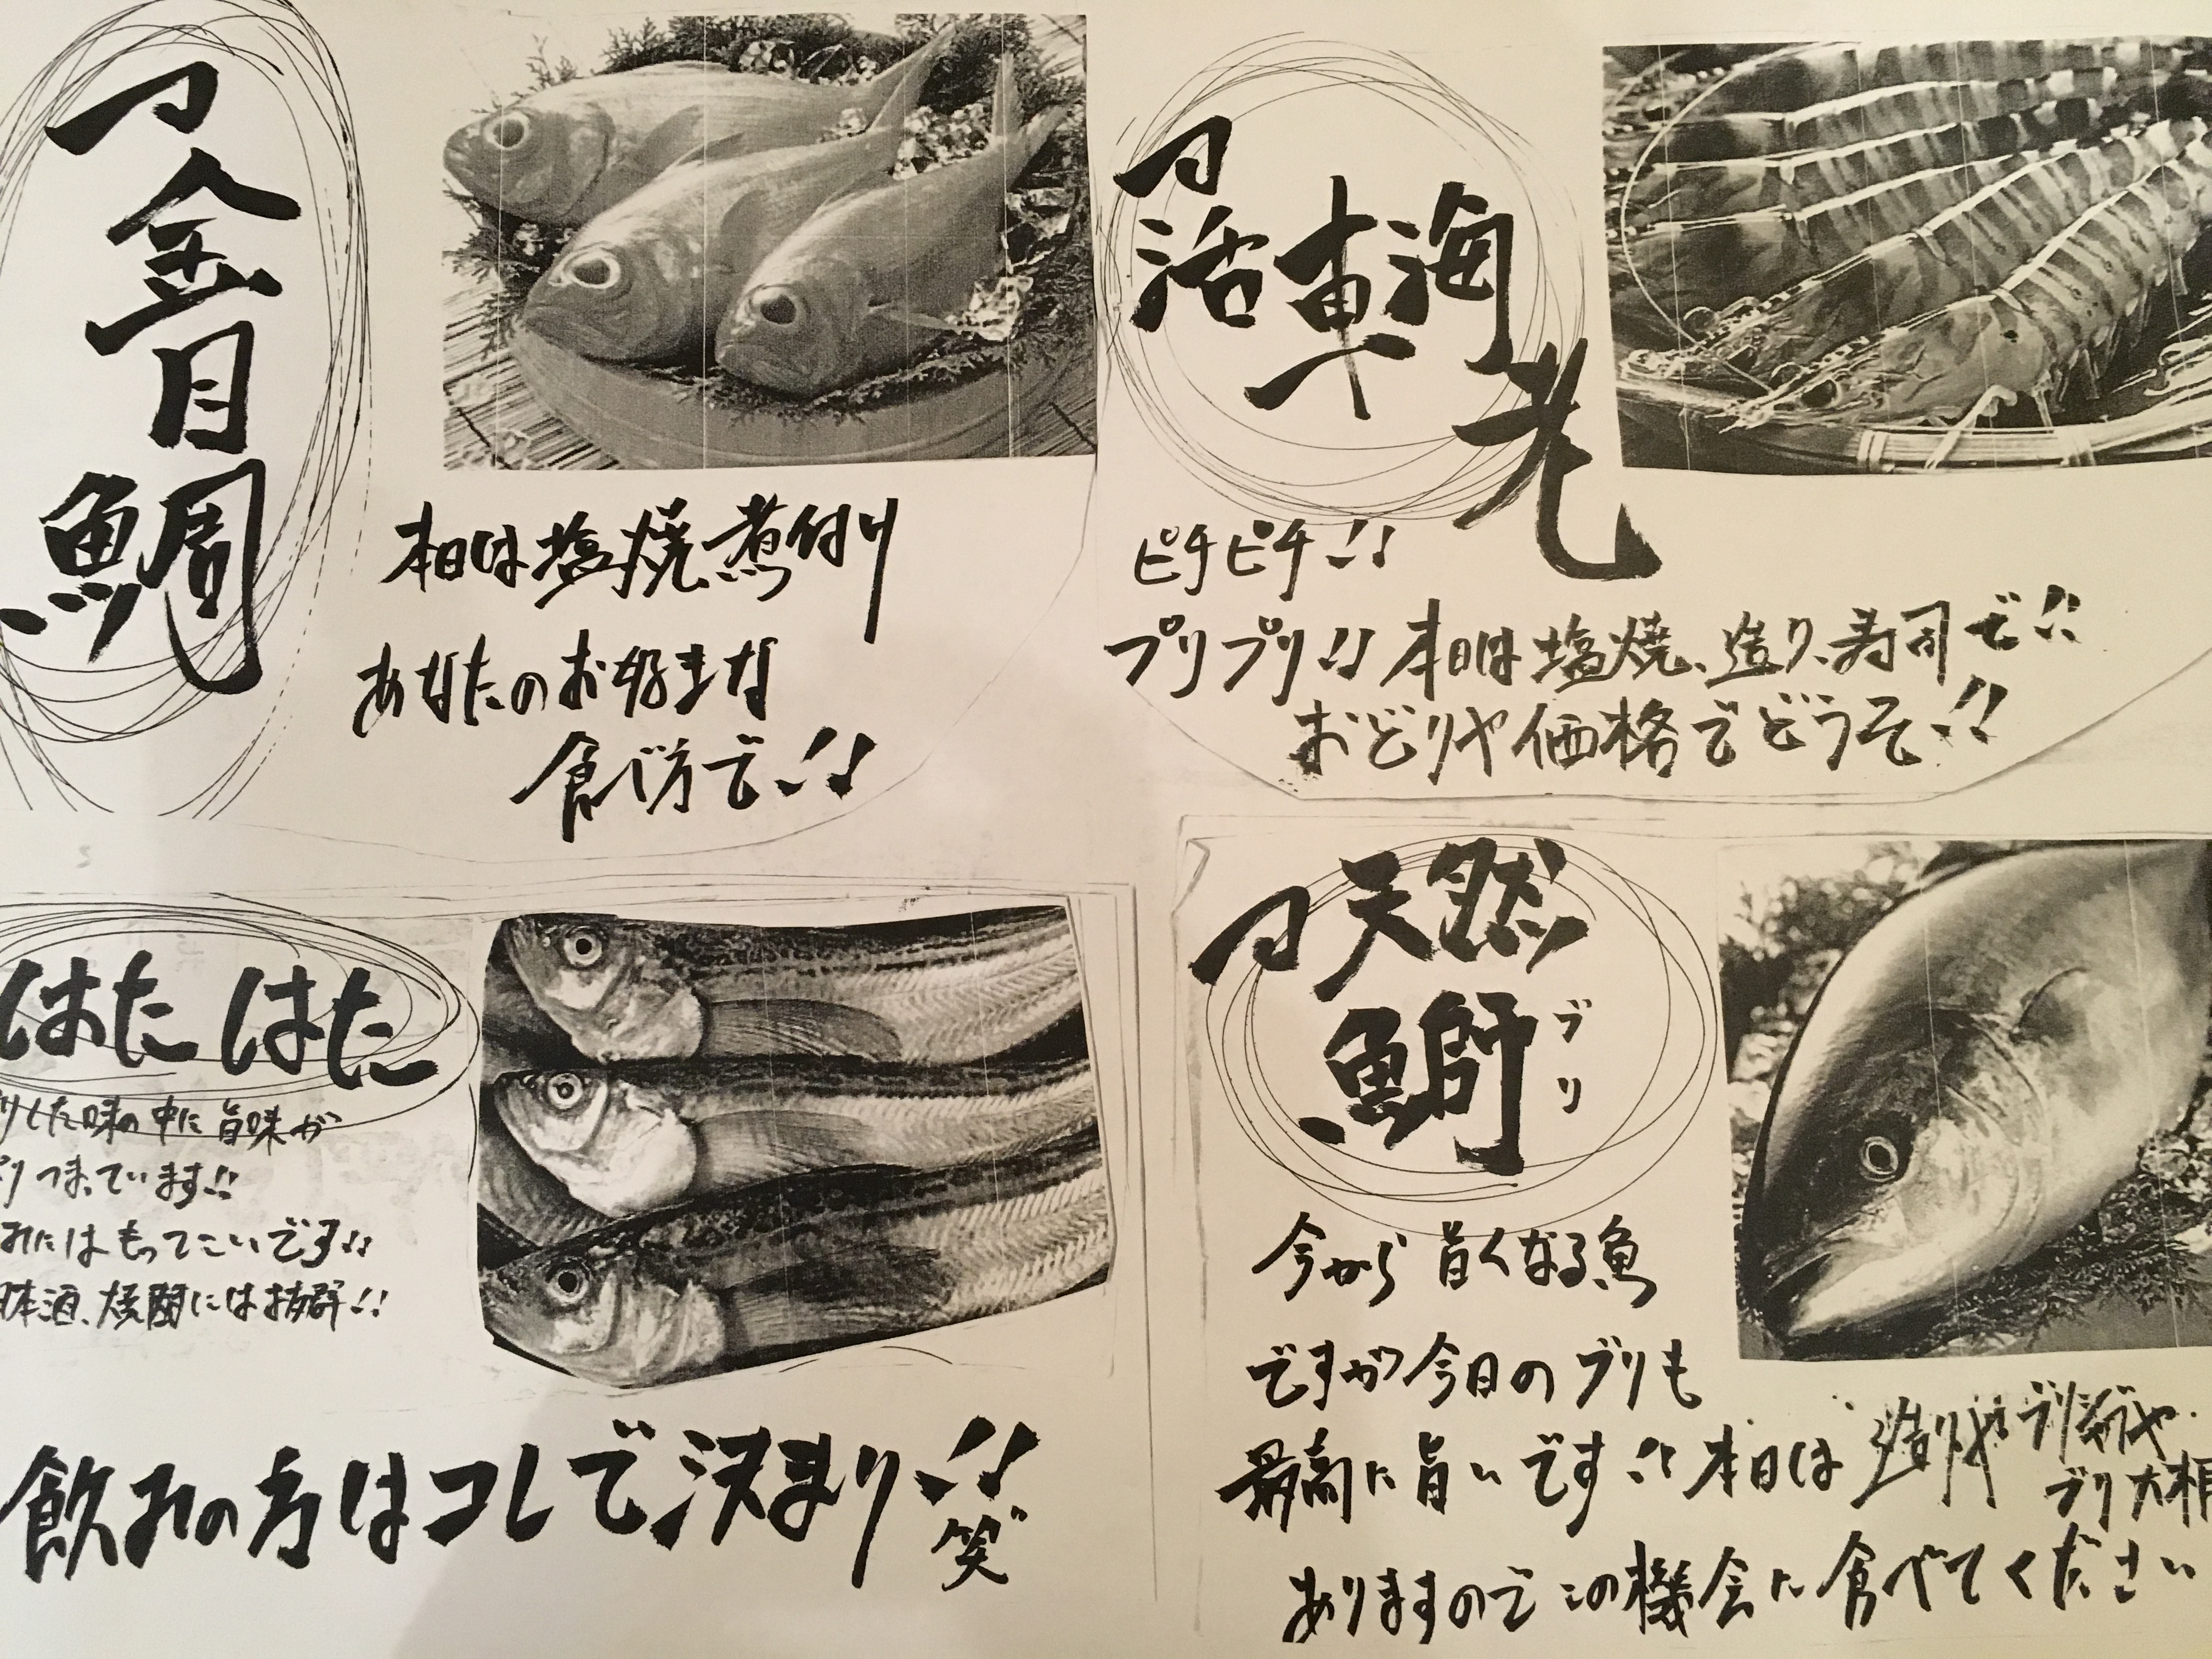 金目鯛
本日は塩焼煮付け
あなたのお好きな
食べ方で!!
活車海老
ピチピチ!!
プリプリ!! 本日は塩焼、造り、寿司で!!
おどりや価格でどうぞ!!
はたはた
りした味の中に旨味が
り つまっています!!
みにはもってこいです!!
日本酒、焼酎には抜群!!
飲みの方はコレで決まり!!
笑
天然
鰤
ブリ
今から旨くなる魚
ですが今日のブリも
最高に旨いです!! 本日は 造りや ブリしゃぶや
ブリ大根
ありますのでこの機会に食べてください